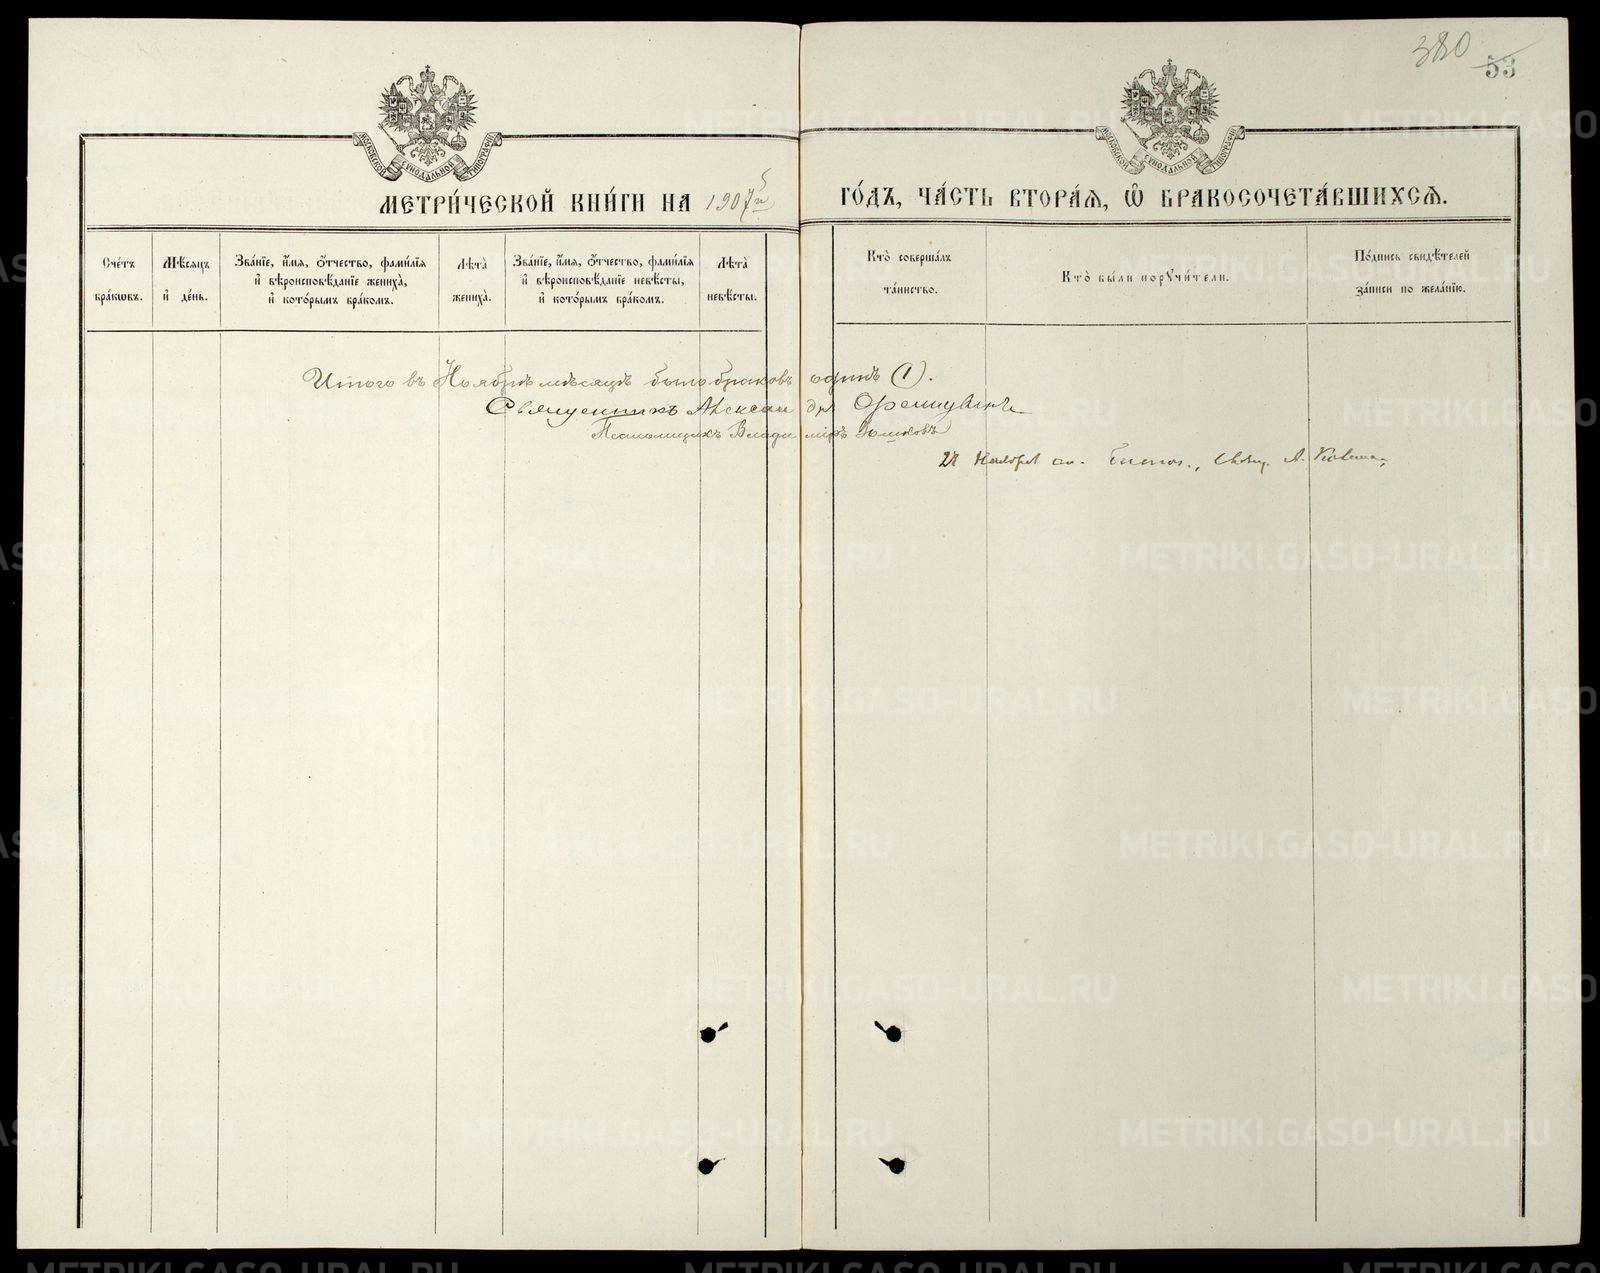 380
53
МОСКОВСКОЙ СѴНОДАЛЬНОЙ ТИПОГРАФІИ
МОСКОВСКОЙ СѴНОДАЛЬНОЙ ТИПОГРАФІИ
МЕТРИ́ЧЕСКОЙ КНИ́ГИ НА 1907й
ГО́ДЪ, ЧА́СТЬ ВТОРА́Я, Ѽ БРАКОСОЧЕТА́ВШИХСѦ.
Сче́тъ
бра́кѡвъ.
Мѣ́сѧцъ
и҆ де́нь.
Зва́нїе, и҆́мѧ, ѻ҆́тчество, фами́лїѧ
и҆ вѣроисповѣ́данїе жениха̀,
и҆ кото́рымъ бра́комъ.
Лѣ́та̀
жениха̀.
Зва́нїе, и҆́мѧ, ѻ҆́тчество, фами́лїѧ
и҆ вѣроисповѣ́данїе невѣ́сты,
и҆ кото́рымъ бра́комъ.
Лѣ́та̀
невѣ́сты.
Кто̀ соверша́лъ
та́инство.
Кто̀ бы́ли порꙋчи́тели.
По́дпись свидѣ́телей
за́писи по жела́нїю.
Итого въ Ноябрѣ мѣсяцѣ было браковъ одинъ (1).
Священникъ Александръ
Псаломщикъ Владиміръ
28 Ноября Свящ. А.
METRIKI.GASO-URAL.RU